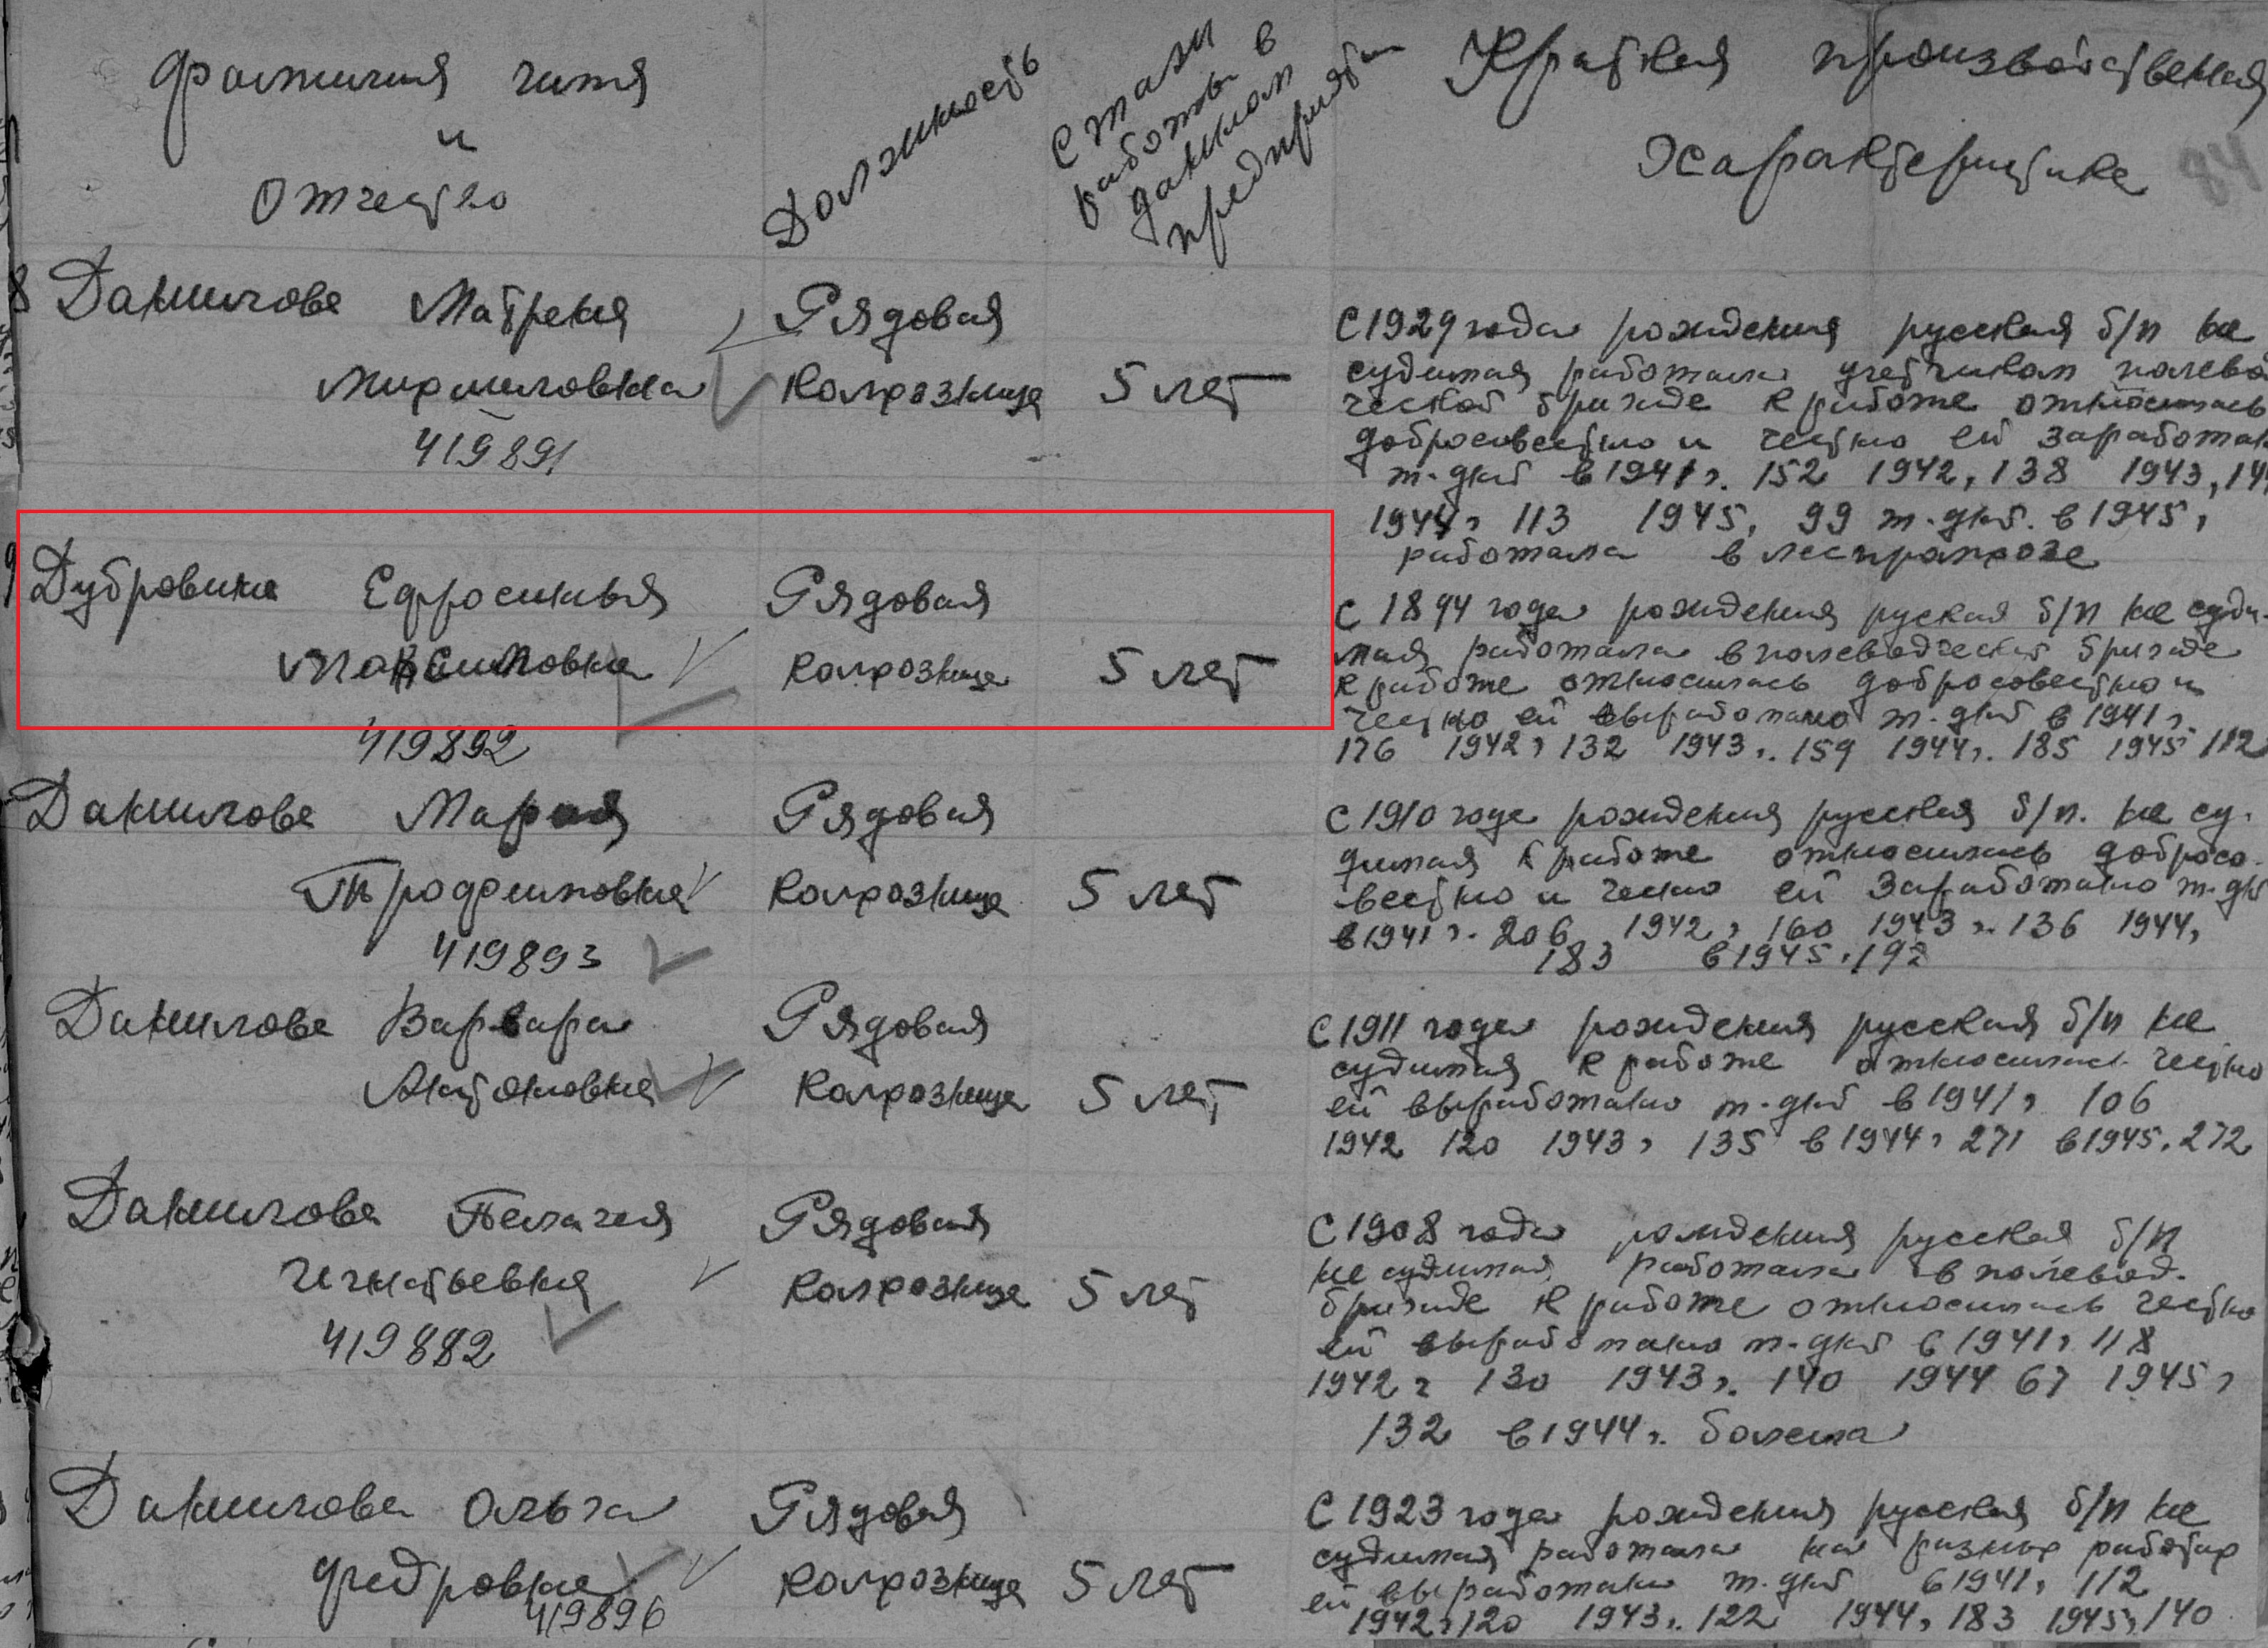 Фамилия имя
и
Отчество
Должность
Стаж
работы в
данном
предприятии
Краткая производственная
Характеристика
84
8 Данилова Матрена Рядовая
Мирмиловна колхозница 5 лет
419891
С 1929 года рождения русская б/п не
судимая работала учетчиком полево
ческой бригаде к работе относилась
добросовестно и честно ей заработан
т-дней в 1941 г. 152 1942, 138 1943, 14
1944 г 113 1945, 99 т-дней. в 1945 г
работала в леспрамхозе
9 Дубровина Ефросинья Рядовая
Максимовна колхозница 5 лет
419892
С 1894 года рождения руская б/п не суди-
мая работала в полеводческой бригаде
к работе относилась добросовестно и
честно ей выработано т-дней в 1941 г.
176 1942 г 132 1943 г. 159 1944 г. 185 1945 112
Данилова Мария Рядовая
Трофимовна колхозница 5 лет
419893
С 1910 года рождения русская б/п. не су-
димая к работе относилась добросо-
вестно и чесно ей заработано т-дн
в 1941 г. 206 1942 г 160 1943 г. 136 1944 г
183 в 1945 г 192
Данилова Варвара Рядовая
Антоновна колхозница 5 лет
С 1911 года рождения русская б/п не
судимая к работе относилась честно
ей выработано т-дней в 1941 г 106
1942 120 1943 г 135 в 1944 г 271 в 1945. 272
Данилова Пелагея Рядовая
Игнатьевна колхозница 5 лет
419882
С 1908 года рождения русская б/п
не судимая работала в полевод.
бригаде к работе относилась честно
ей выработано т-дней в 1941 г 118
1942 г 130 1943 г. 140 1944 67 1945 г
132 в 1944 г. болела
Данилова Ольга Рядовая
Федровна колхозница 5 лет
419896
С 1923 года рождения русская б/п не
судимая работала на разных работах
ей выработано т-дней в 1941 г 112
1942 г 120 1943 г. 122 1944 г 183 1945 г 140